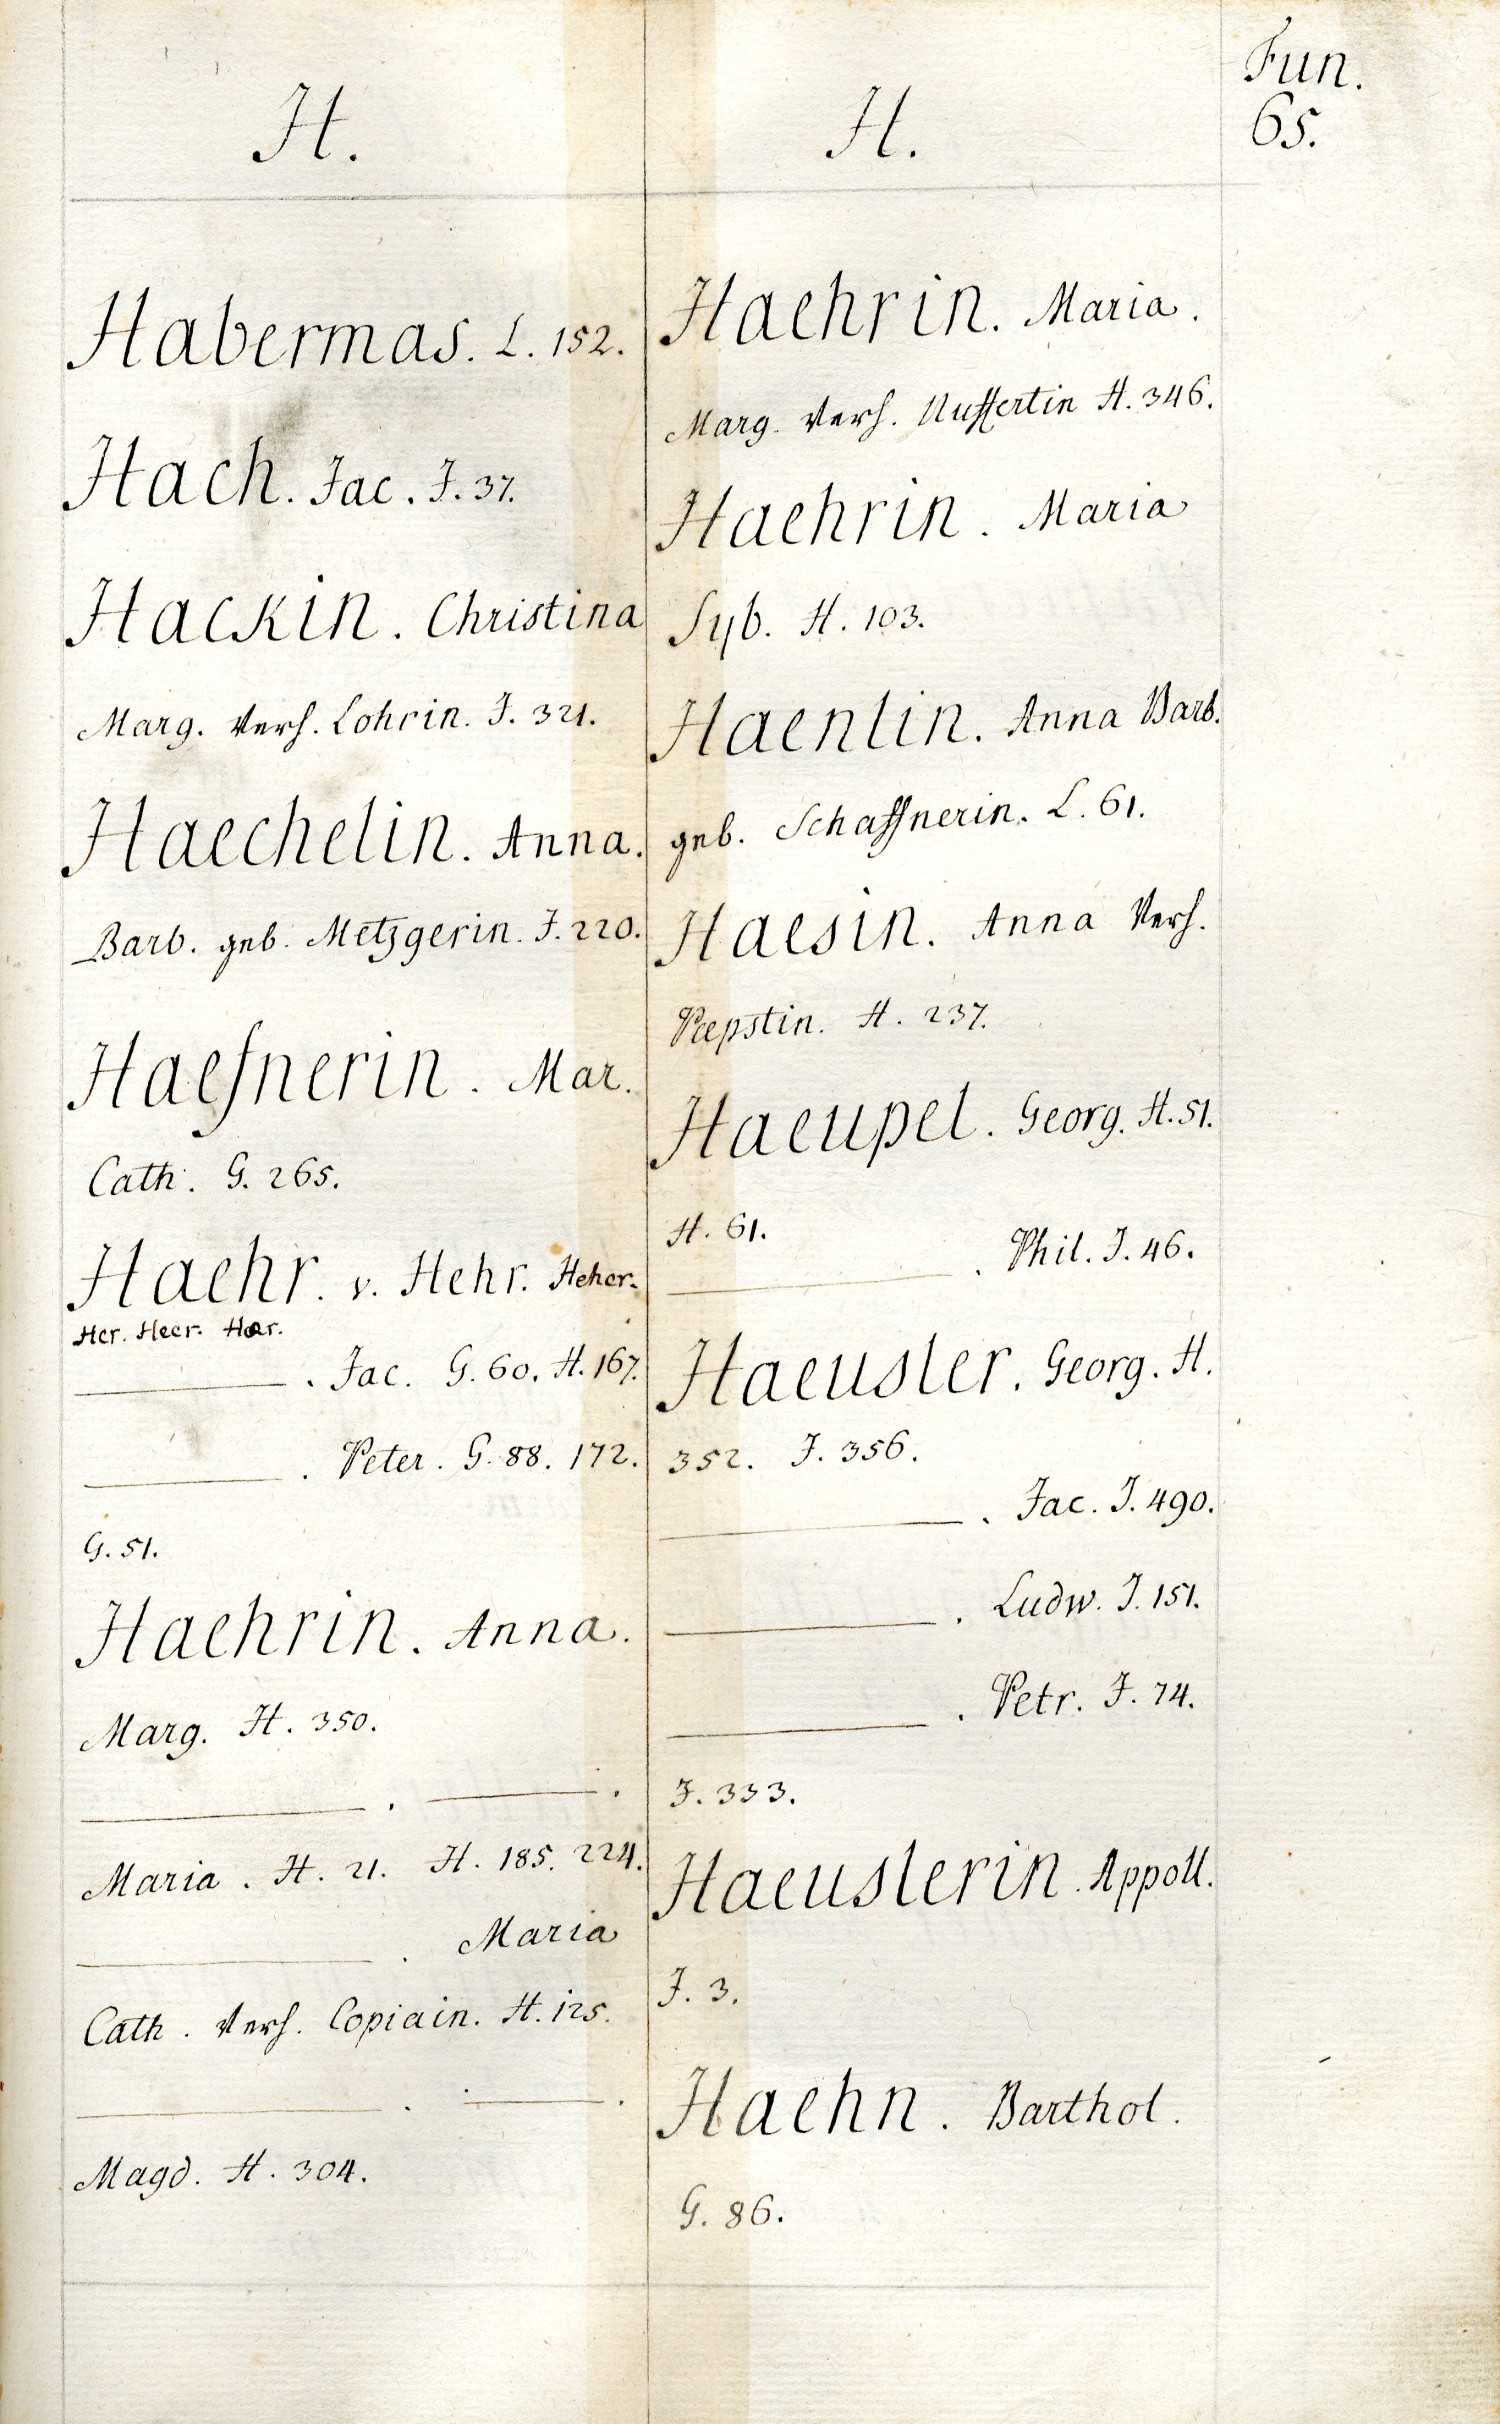 Fun.
65.
H.
Habermas. L. 152.
Hach. Jac. J. 37.
Hackin. Christina
Marg. Verh. Lohrin. J. 321.
Haechelin. Anna.
Barb. geb. Metzgerin. J. 220.
Haefnerin. Mar.
Cath. G. 265.
Haehr. v. Hehr. Heher.
Her. Heer. Haer.
———. Jac. G. 60. H. 167.
———. Peter. G. 88. 172.
G. 51.
Haehrin. Anna.
Marg. H. 350.
———. ———.
Maria. H. 21. H. 185. 224.
———. Maria
Cath. Verh. Copiain. H. 125.
———. ———.
Magd. H. 304.
H.
Haehrin. Maria.
Marg. Verh. Nuffertin H. 346.
Haehrin. Maria
Syb. H. 103.
Haenlin. Anna Barb.
geb. Schaffnerin. L. 61.
Haesin. Anna Verh.
Paepstin. H. 237.
Haeupel. Georg. H. 51.
H. 61.
———. Phil. J. 46.
Haeusler. Georg. H.
352. J. 356.
———. Jac. J. 490.
———. Ludw. J. 151.
———. Petr. J. 74.
J. 333.
Haeuslerin. Appoll.
J. 3.
Haehn. Barthol.
G. 86.